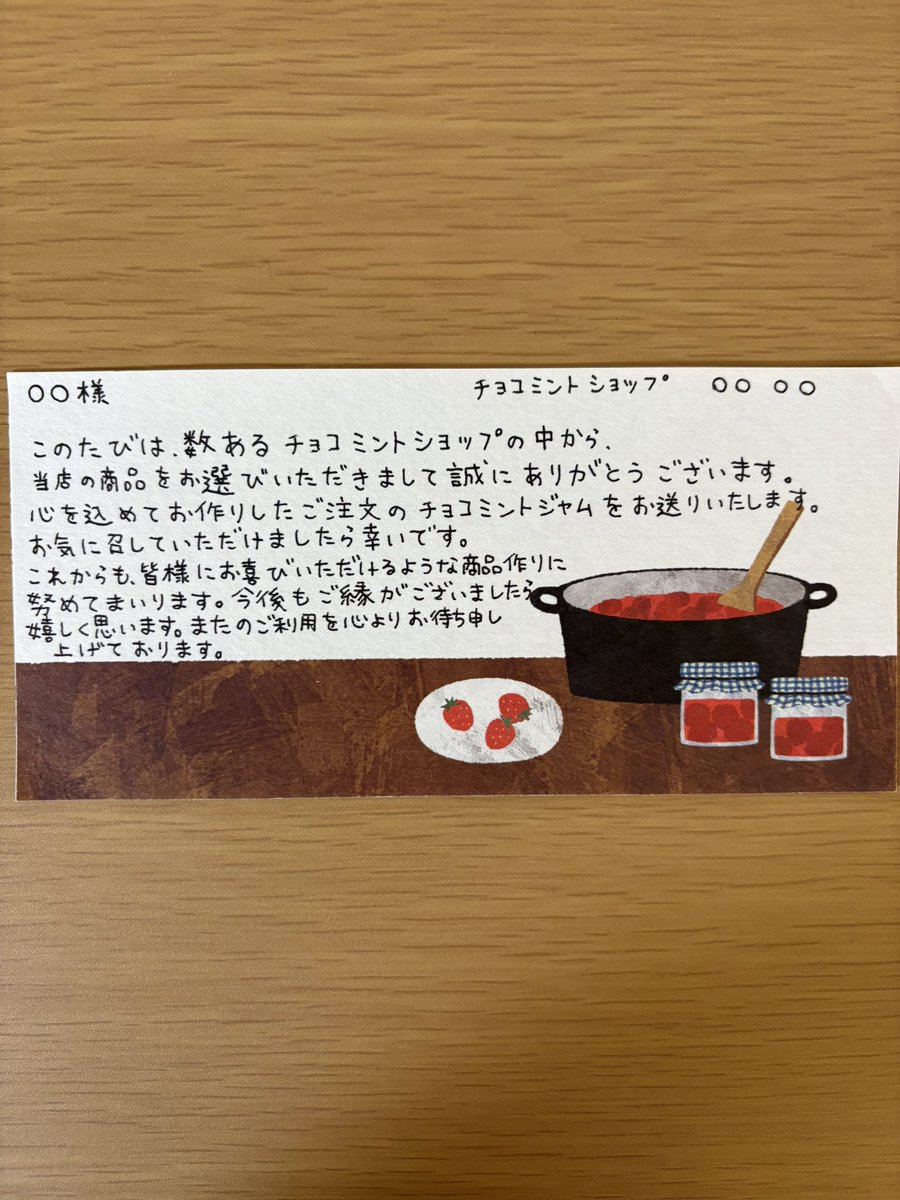 ○○様
チョコミントショップ ○○ ○○
このたびは、数あるチョコミントショップの中から、
当店の商品をお選びいただきまして誠にありがとうございます。
心を込めてお作りしたご注文のチョコミントジャムをお送りいたします。
お気に召していただけましたら幸いです。
これからも、皆様にお喜びいただけるような商品作りに
努めてまいります。今後もご縁がございましたら
嬉しく思います。またのご利用を心よりお待ち申し
上げております。